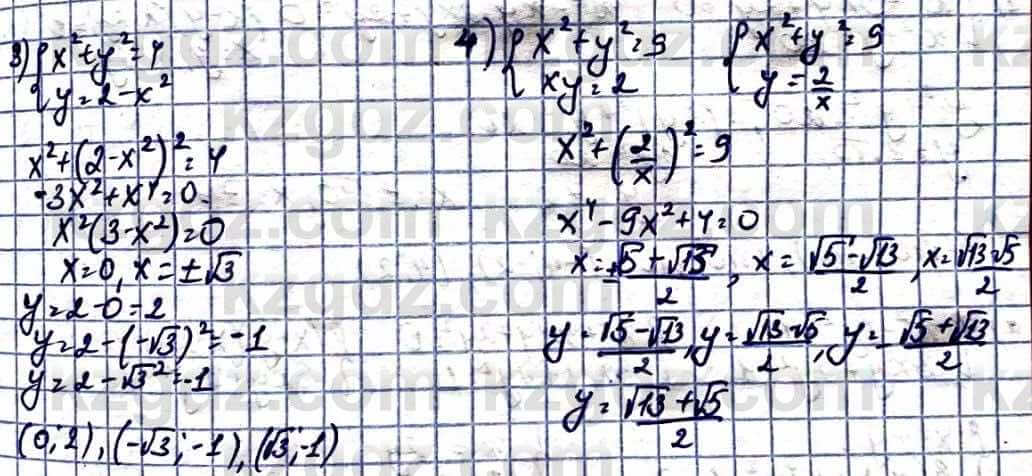 3) { x² + y² = 4
{ y = 2 - x²
x² + (2 - x²)² = 4
-3x² + x⁴ = 0
x²(3 - x²) = 0
x = 0, x = ±√3
y = 2 - 0 = 2
y = 2 - (-√3)² = -1
y = 2 - √3² = -1
(0; 2), (-√3; -1), (√3; -1)
4) { x² + y² = 9 { x² + y² = 9
{ xy = 2 { y = 2/x
x² + (2/x)² = 9
x⁴ - 9x² + 4 = 0
x = ±√5 + √13 / 2, x = √5 - √13 / 2, x = √13 - √5 / 2
y = √5 - √13 / 2, y = √13 - √5 / 2, y = √5 + √13 / 2
y = √13 + √5 / 2
kzgdz.com